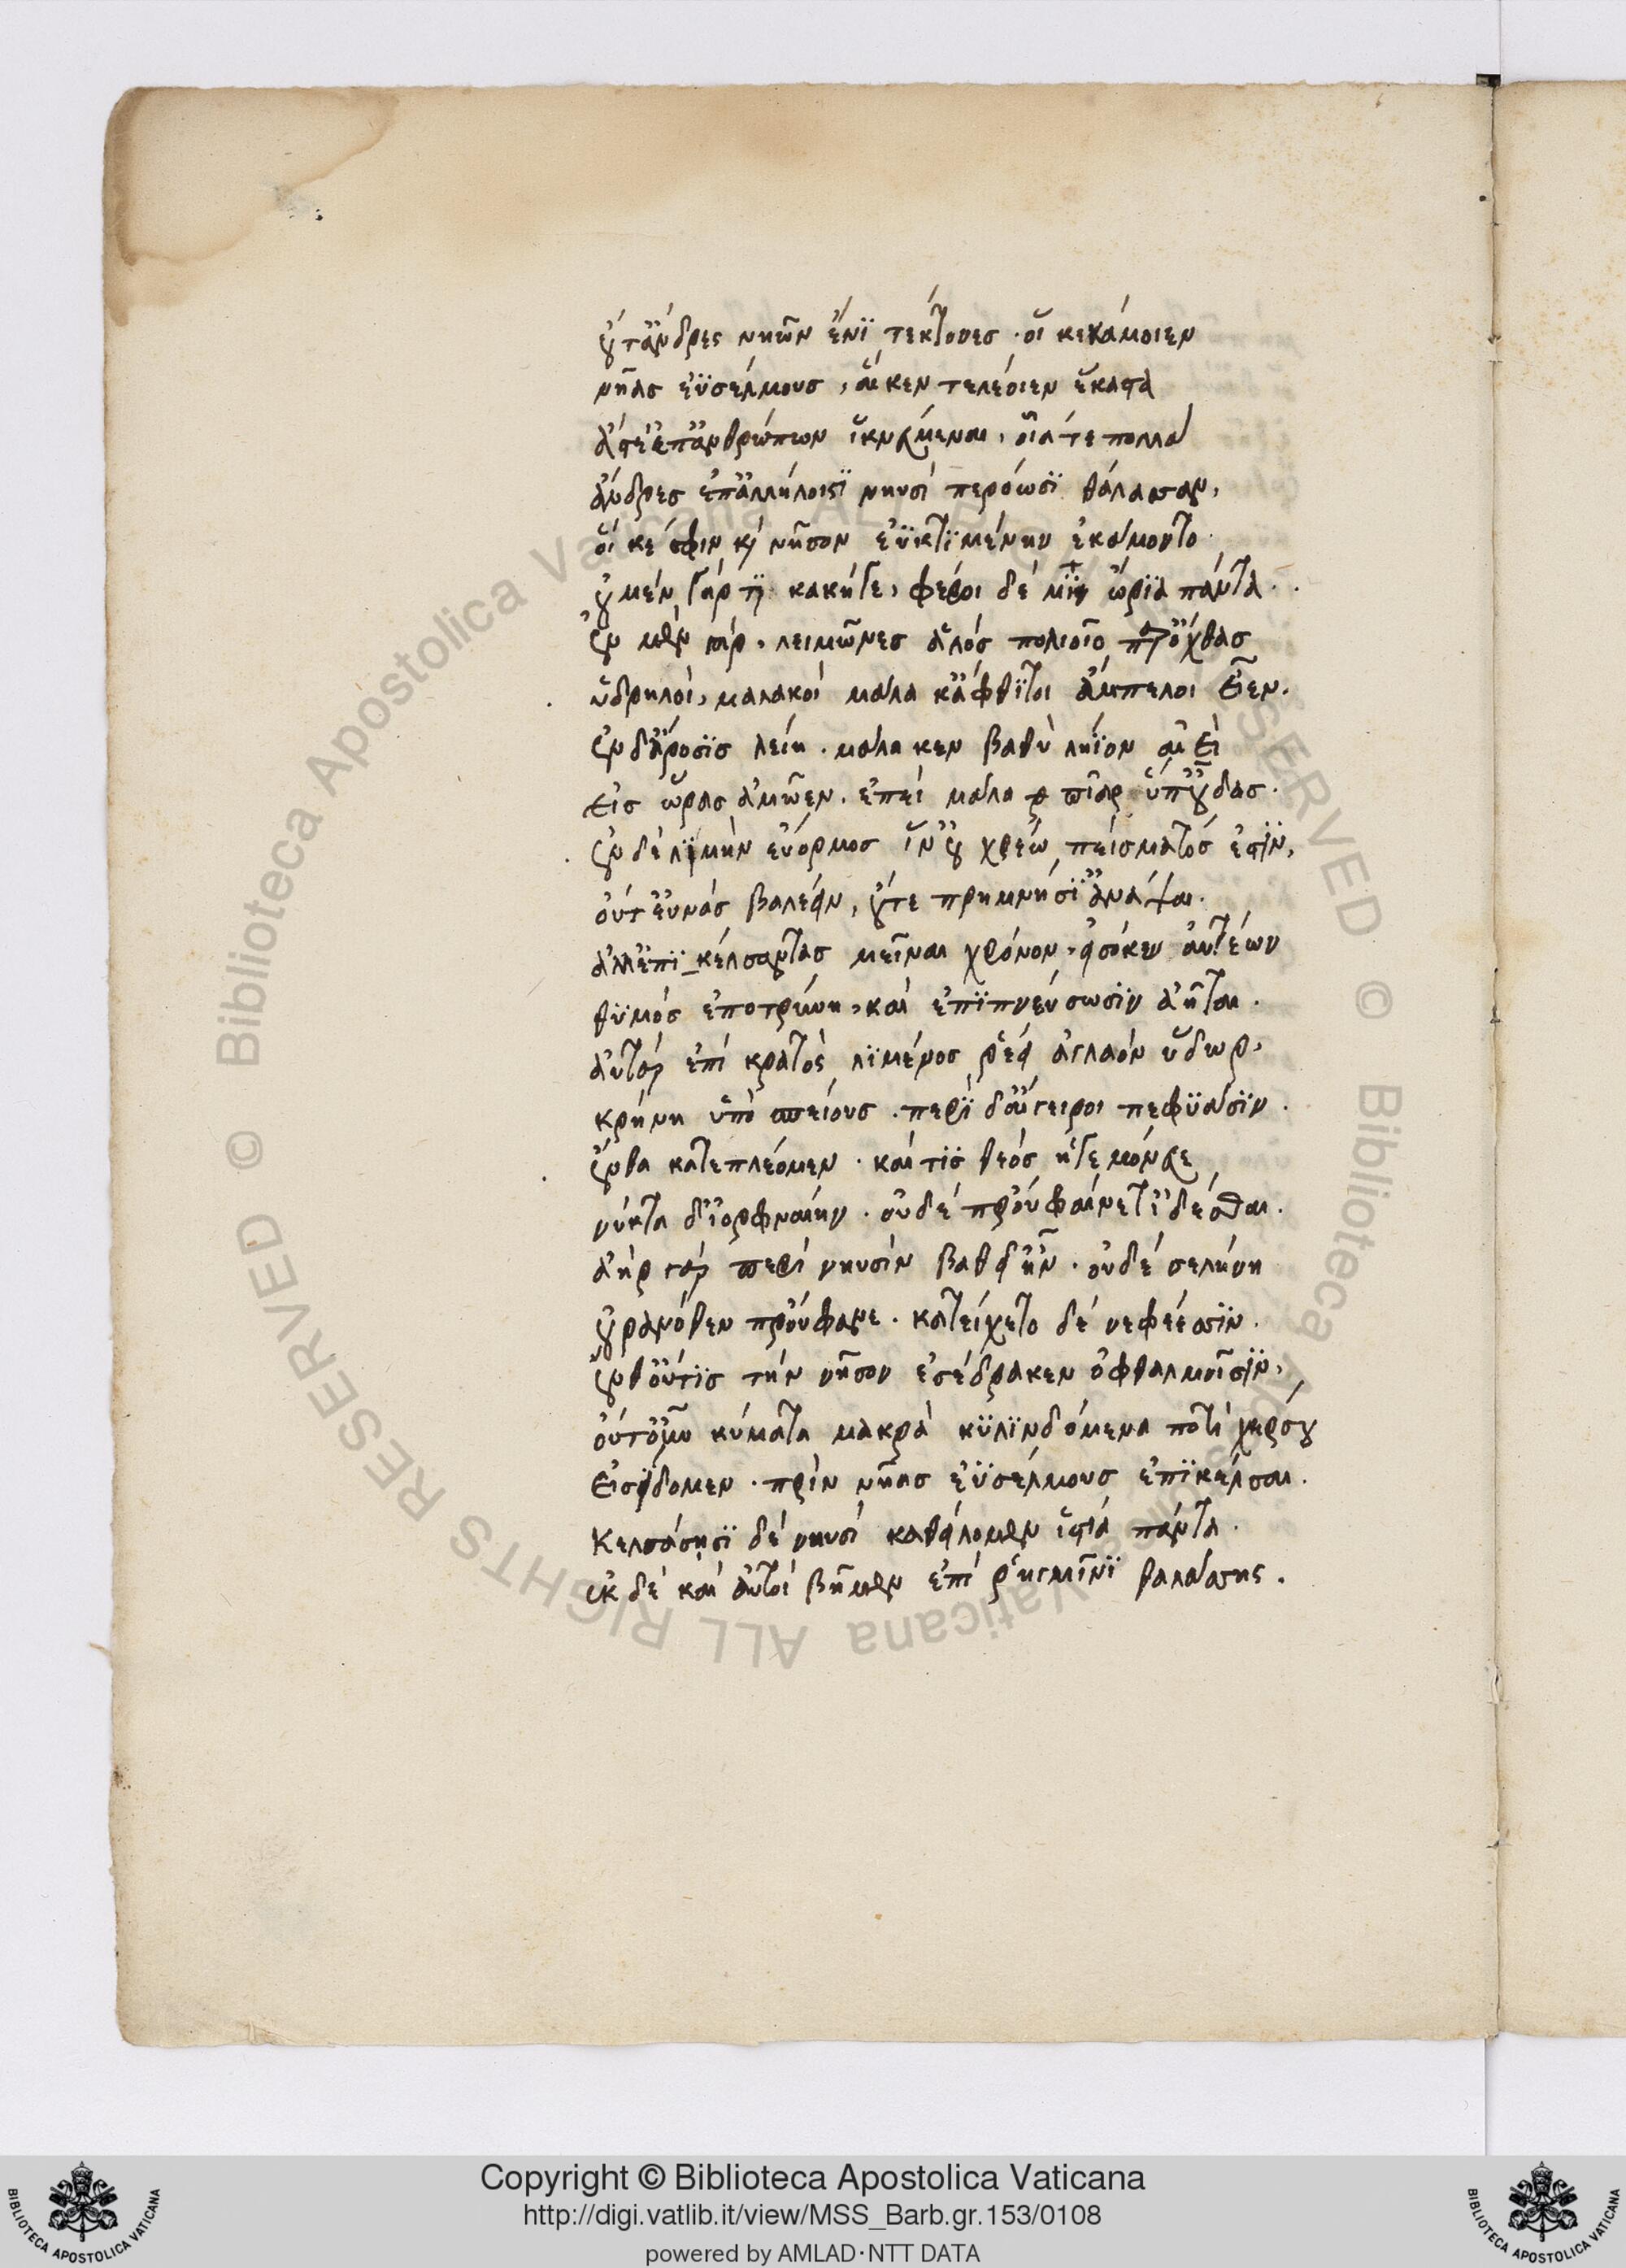 οὐτ' ἄνδρες νηῶν ἔνϊ τέκτονες · οἵ κεκάμοιεν
νῆας εὐϋσέλμους , αἵ κεν τελέοιεν ἕκαστα
ἄστε' ἐπ' ἀνθρώπων ἱκνεύμεναι , οἷά τε πολλὰ
ἄνδρες ἐπ' ἀλλήλοισϊ νηυσὶ περόωσϊ θάλασσαν ,
οἵ κέ σφιν καὶ νῆσον ἐϋκτϊμένην ἐκάμοντο ·
οὐ μὲν γάρ τϊ κακήγε , φέροι δέ ὥρϊα πάντα ·
ἐν μὲν γὰρ · λειμῶνες ἁλός πολιοῖο παρ' ὄχθας
ὑδρηλοὶ , μαλακοί μάλα κ' ἄφθϊτοι ἄμπελοι εἶεν ·
ἐν δ' ἄροσϊς λείη · μάλα κεν βαθὺ λήϊον αἰεὶ
εἰς ὥρας ἀμῷεν · ἐπεί μάλα πῖαρ ὑπ' οὖδας ·
ἐν δὲ λϊμὴν εὔορμος ἵν' οὐ χρεώ πείσματός ἐστϊν ,
οὔτ' εὐνάς βαλέειν , οὔτε πρημνήσϊ' ἀνάψαι ·
ἀλλ' ἐπϊκέλσαντας μεῖναι χρόνον · εἰσόκεν αὐτέων
θϋμός ἐποτρύνη , καὶ ἐπϊπνεύσωσϊν ἀῆται ·
αὐτὰρ ἐπί κρατός λϊμένος ῥέει ἀγλαόν ὕδωρ ,
κρήνη ὑπὸ σπείους · περϊ δ' αὔγειροι πεφϋάσϊν ·
ἔνθα κατεπλέομεν · καί τϊς θεός ἡγεμόνευε
νύκτα δϊ' ὀρφναίην · οὐδέ προὐφαίνετ' ἰδέσθαι ·
ἀὴρ γὰρ περὶ νηυσὶν βαθεῖ' ἦν · οὐδέ σελήνη
οὐρανόθεν προὔφαινε · κατείχετο δέ νεφέεσσϊν ·
ἔνθ' οὔτϊς τήν νῆσον ἐσέδρακεν ὀφθαλμοῖσϊν ,
οὔτ' οὖν κύματα μακρὰ κϋλϊνδόμενα ποτὶ χέρσου
εἰσϊδομεν · πρὶν νῆας ἐϋσέλμους ἐπϊκέλσαι ·
κελσάσησϊ δέ νηυσί καθείλομεν ἱστία πάντα ·
ἐκ δέ καὶ αὐτοί βῆμεν ἐπί ῥηγμῖνϊ θαλάσσης ·
© Biblioteca Apostolica Vaticana ALL RIGHTS RESERVED
Copyright © Biblioteca Apostolica Vaticana
http://digi.vatlib.it/view/MSS_Barb.gr.153/0108
powered by AMLAD·NTT DATA
BIBLIOTECA APOSTOLICA VATICANA
BIBLIOTECA APOSTOLICA VATICANA